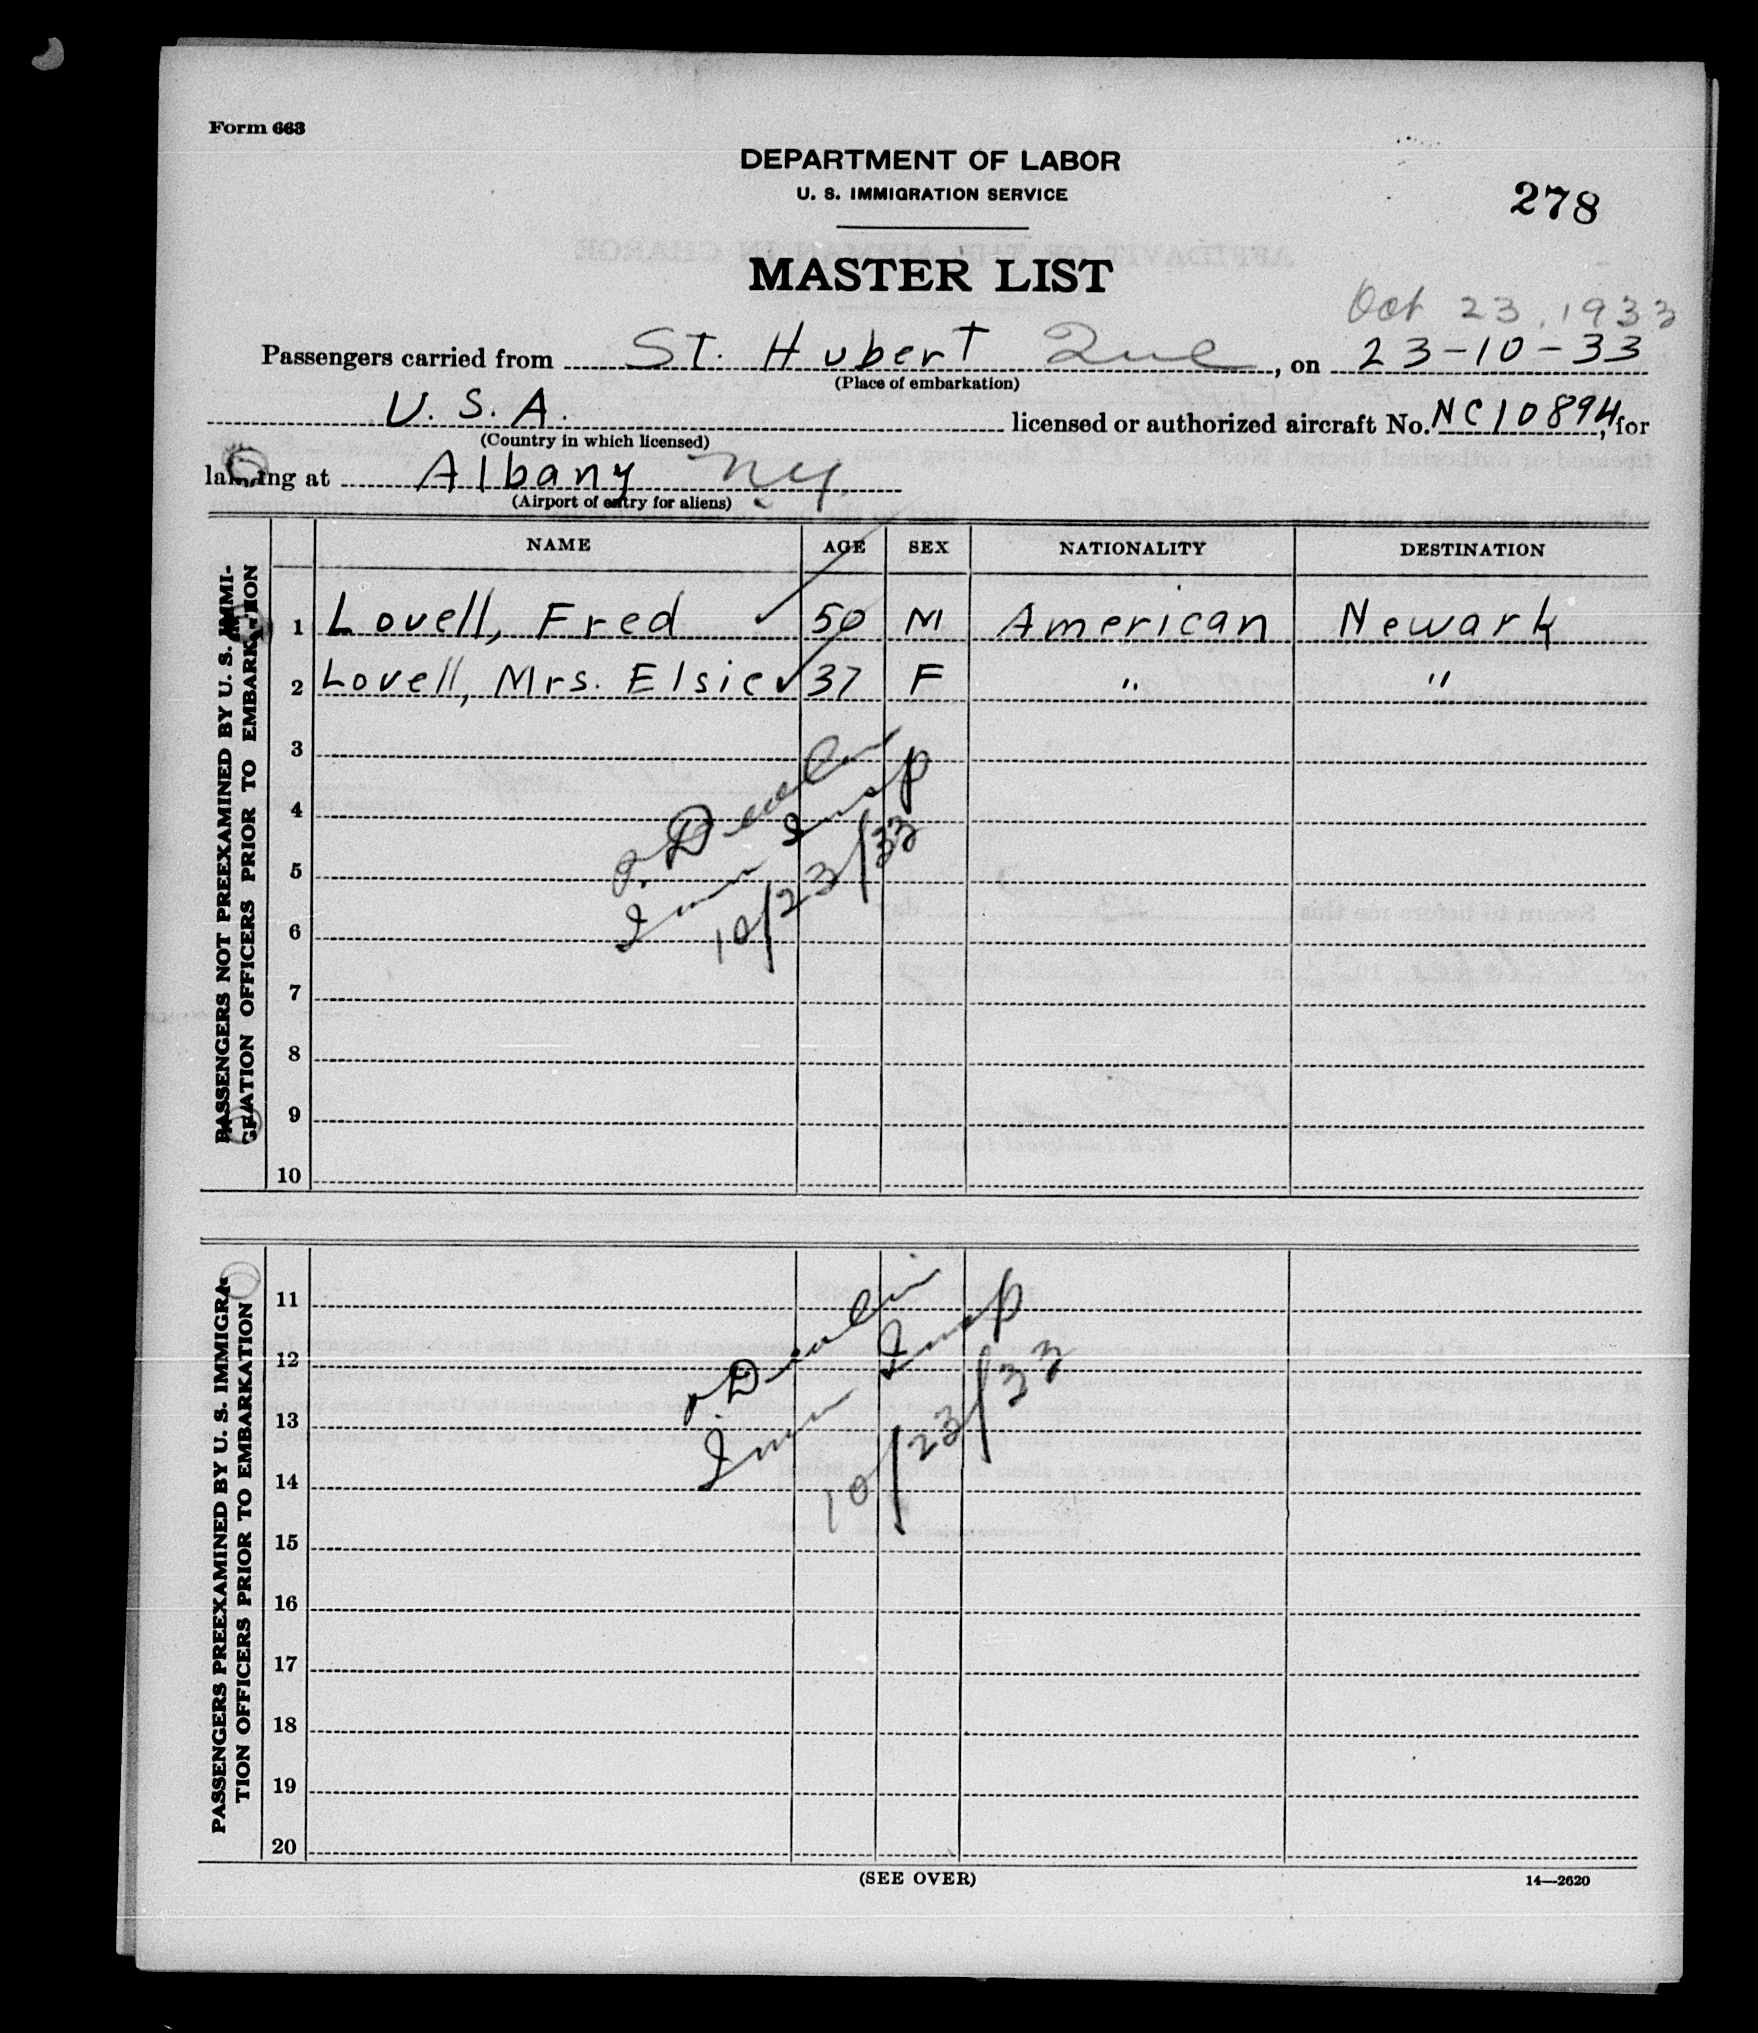 Form 663
DEPARTMENT OF LABOR
U. S. IMMIGRATION SERVICE
278
MASTER LIST
Oct 23, 1933
Passengers carried from St. Hubert Que, on 23-10-33
(Place of embarkation)
U. S. A. licensed or authorized aircraft No. NC10894, for
(Country in which licensed)
landing at Albany N.Y.
(Airport of entry for aliens)
NAME AGE SEX NATIONALITY DESTINATION
PASSENGERS NOT PREEXAMINED BY U. S. IMMI-
GRATION OFFICERS PRIOR TO EMBARKATION
1 Lovell, Fred ✓ 50 M American Newark
2 Lovell, Mrs. Elsie ✓ 37 F " "
3
4
5
6
7
8
9
10
Devlin
Imm Insp
10/23/33
PASSENGERS PREEXAMINED BY U. S. IMMIGRA-
TION OFFICERS PRIOR TO EMBARKATION
11
12
13
14
15
16
17
18
19
20
Devlin
Imm Insp
10/23/33
(SEE OVER)
14—2620